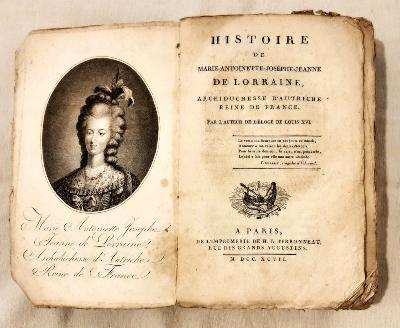 Marie Antoinette Josephe
Jeanne de Lorraine
Archiduchesse d'Autriche
Reine de France.
HISTOIRE
DE
MARIE-ANTOINETTE-JOSEPHE-JEANNE
DE LORRAINE,
ARCHIDUCHESSE D'AUTRICHE
REINE DE FRANCE.
PAR L'AUTEUR DE L'ÉLOGE DE LOUIS XVI.
A PARIS,
DE L'IMPRIMERIE DE H. L. PERRONNEAU,
RUE DES GRANDS AUGUSTINS.
M DCC. XCVII.